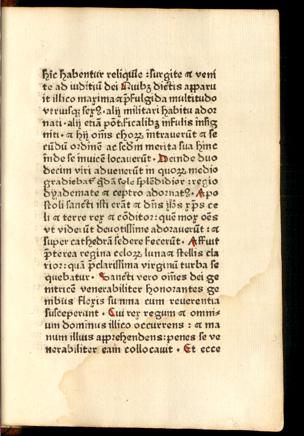 hic habentur reliquie : surgite ⁊ veni
te ad iuditiū dei Quibꝫ dictis apparu
it illico maxima ⁊ p̄fulgida multitudo
vtriusqꝫ sex⁹. alij militari habitu ador
nati . alij etiā pōtificalibꝫ infulis insig
niti . ⁊ hij om̄s choꝝ intrauerūt ⁊ se
cūdū ordinē ac sedm merita sua hinc
inde se inuicē locauerūt . Deinde duo
decim viri aduenerūt in quoꝝ medio
gradiebat᷑ q̄dā sole splēdidior : regio
dyademate ⁊ ceptro adornat⁹. Apo
stoli sancti isti erāt ⁊ dn̄s ih̄s xp̄s ce
li ⁊ terre rex ⁊ cōditor : quē mox oēs
vt viderūt deuotissime adorauerūt : ⁊
super cathedrā sedere fecerūt . Affuit
p̄terea regina celoꝝ luna ⁊ stellis cla
rior : quā p̄clarissima virginū turba se
quebatur . Sancti vero om̄es dei ge
nitricē venerabiliter honorantes ge
nibus flexis summa cum reuerentia
susceperunt . Cui rex regum ⁊ omni-
um dominus illico occurrens : ⁊ ma
num illius apprehendens : penes se ve
nerabiliter eam collocauit . Et ecce